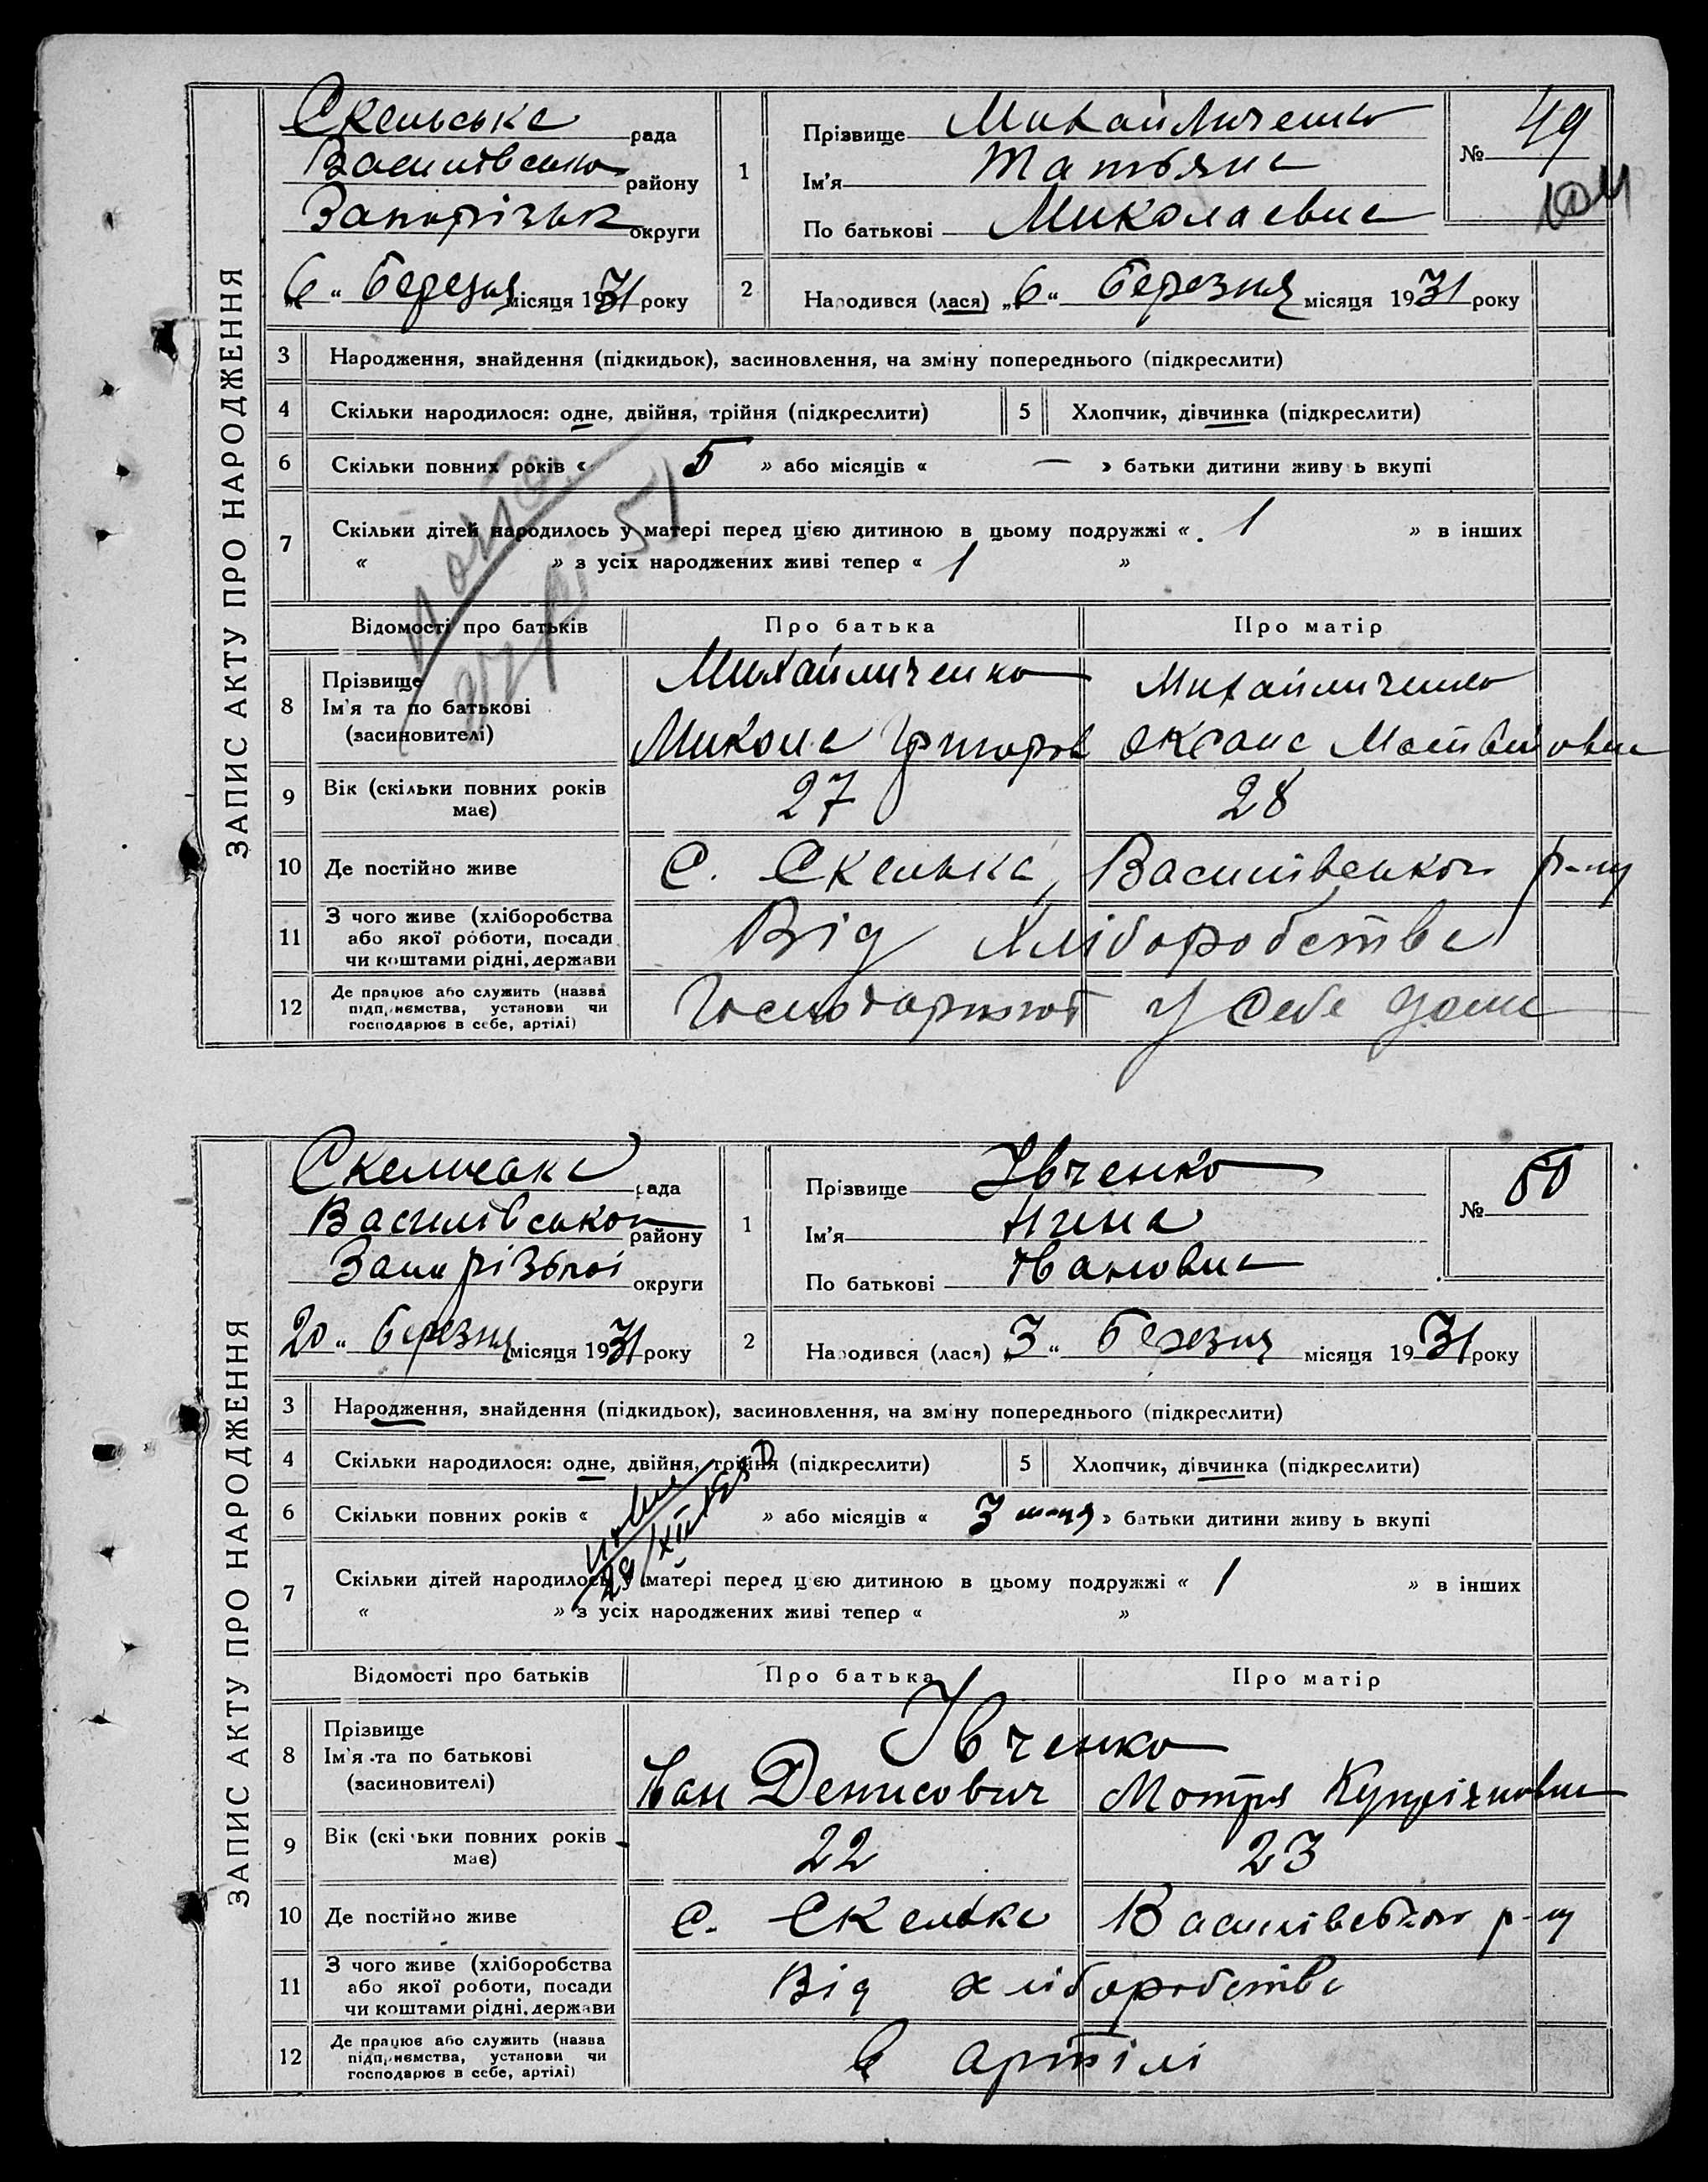 ЗАПИС АКТУ ПРО НАРОДЖЕННЯ
Скельська рада
Василівсько району
Запорізьк округи
„6“ березня місяця 1931 року
1 Прізвище Михайличенко
Ім'я Татьяна
По батькові Миколаевна
№ 49
104
2 Народився (лася) „6“ березня місяця 1931 року
3 Народження, знайдення (підкидьок), засиновлення, на зміну попереднього (підкреслити)
4 Скільки народилося: одне, двійня, трійня (підкреслити) 5 Хлопчик, дівчинка (підкреслити)
6 Скільки повних років « 5 » або місяців « — » батьки дитини живу ь вкупі
7 Скільки дітей народилось у матері перед цією дитиною в цьому подружжі « 1 » в інших
« » з усіх народжених живі тепер « 1 »
51
Відомості про батьків Про батька Про матір
8 Прізвище
Ім'я та по батькові
(засиновителі)
Михайличенко Михайличенко
Микола Григоров Оксана Матвійовна
9 Вік (скільки повних років має) 27 28
10 Де постійно живе С. Скелька, Василівського р-ну
11 З чого живе (хліборобства
або якої роботи, посади
чи коштами рідні, держави
Від хліборобства
12 Де працює або служить (назва
підприємства, установи чи
господарює в себе, артілі)
Господарюют у себе дома
ЗАПИС АКТУ ПРО НАРОДЖЕННЯ
Скельська рада
Василівського району
Запорізької округи
20“ березня місяця 1931 року
1 Прізвище Івченко
Ім'я Нина
По батькові Ивановна
№ 50
2 Народився (лася) „3“ березня місяця 1931 року
3 Народження, знайдення (підкидьок), засиновлення, на зміну попереднього (підкреслити)
4 Скільки народилося: одне, двійня, трійня (підкреслити) 5 Хлопчик, дівчинка (підкреслити)
6 Скільки повних років « » або місяців « 3 » батьки дитини живу ь вкупі
7 Скільки дітей народилось у матері перед цією дитиною в цьому подружжі « 1 » в інших
« » з усіх народжених живі тепер « »
Відомості про батьків Про батька Про матір
8 Прізвище
Ім'я та по батькові
(засиновителі)
Івченко
Іван Денисович Мотря Купріяновна
9 Вік (скільки повних років має) 22 23
10 Де постійно живе С. Скелька Василівського р-ну
11 З чого живе (хліборобства
або якої роботи, посади
чи коштами рідні, держави
Від хліборобства
12 Де працює або служить (назва
підприємства, установи чи
господарює в себе, артілі)
в артілі